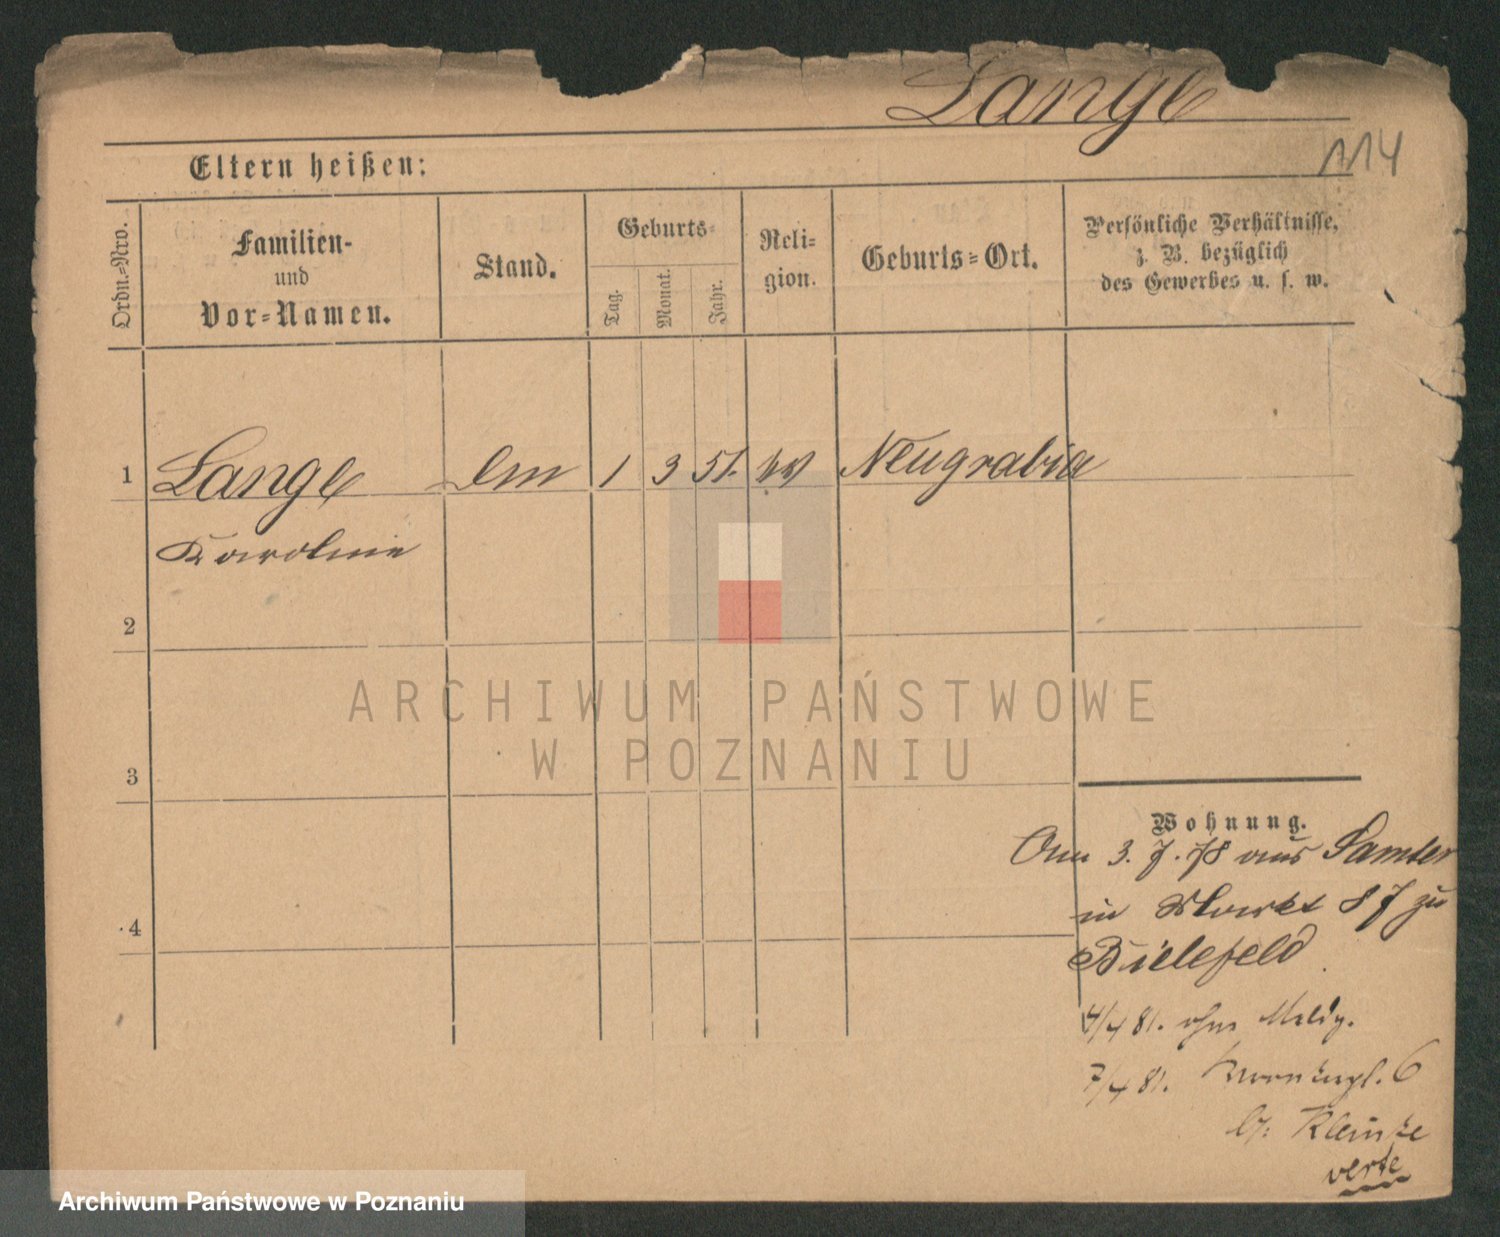 Lange
1114
Eltern heißen:
Ordn.=Nro.
Familien-
und
Vor=Namen.
Stand.
Geburts=
Tag.
Monat.
Jahr.
Reli=
gion.
Geburts=Ort.
Persönliche Verhältnisse,
z. B. bezüglich
des Gewerbes u. s. w.
1 Lange 1 3 51. Neugrabia
Karoline
2
3
4
Wohnung.
3. 7. 78 aus Samter
in Markt 87 zu
Bielefeld
4/4 81. ohne Meldg.
7/4 81. 6
b/: Kleinke
verte
ARCHIWUM PAŃSTWOWE
W POZNANIU
Archiwum Państwowe w Poznaniu